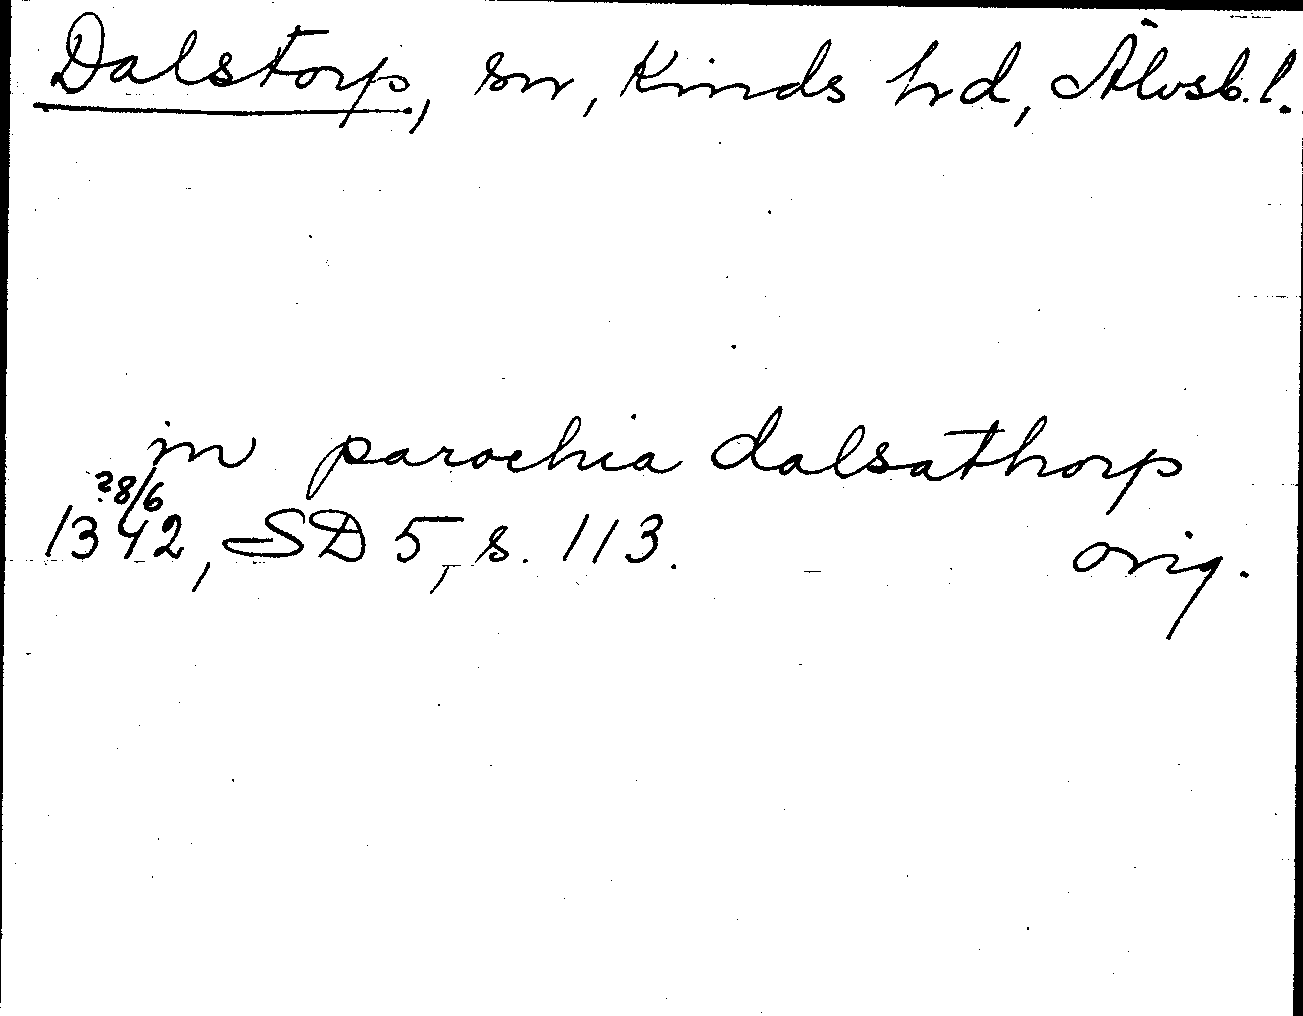 Dalstorp, sn, Kinds hd, Älvsb. l.
in parochia dalsathorp
28/6
1342, SD 5, s. 113. orig.